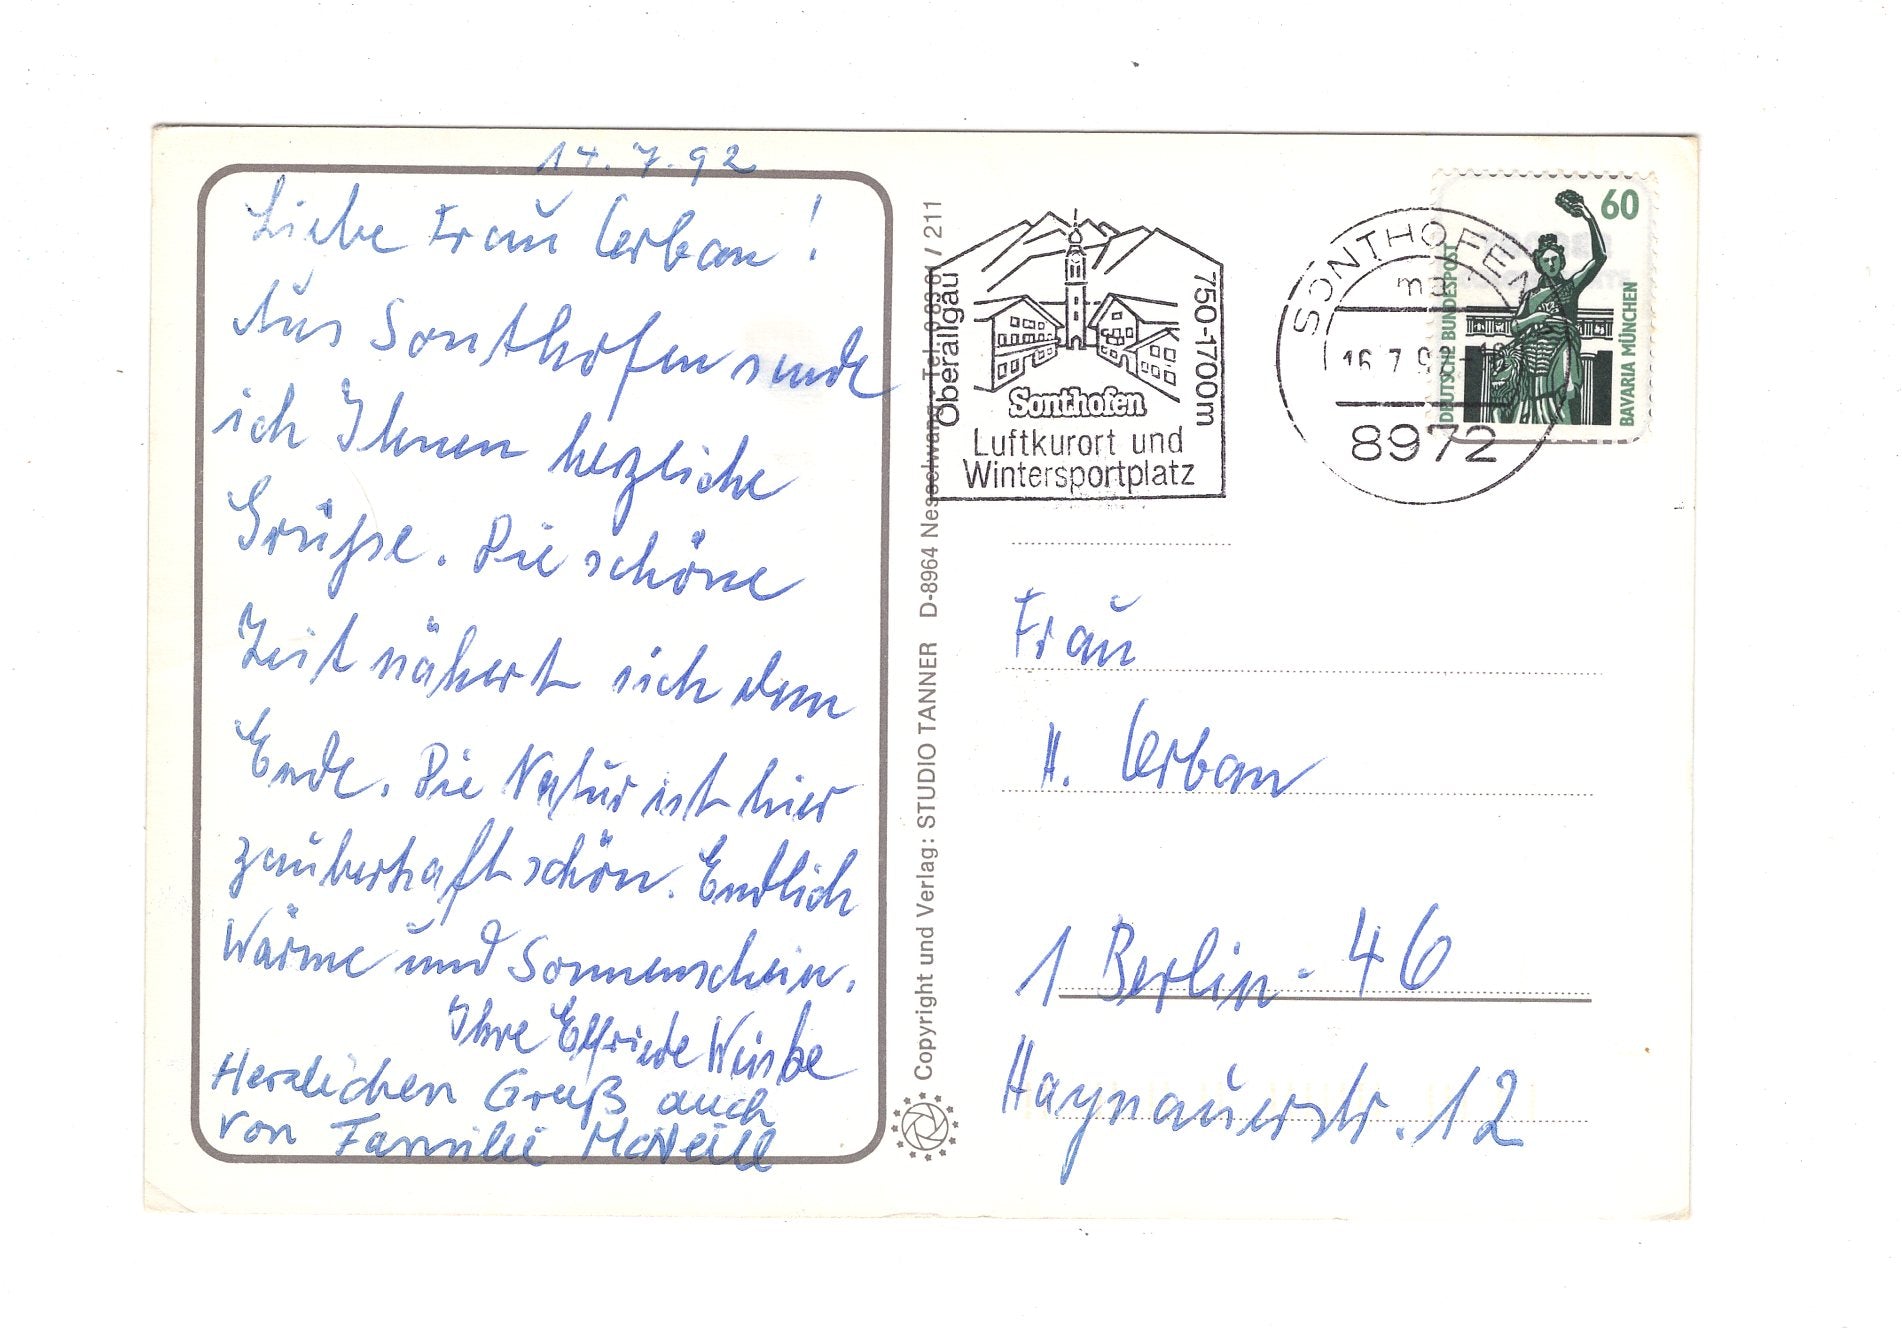 14.7.92
Liebe Frau Urban!
Aus Sonthofen sende
ich Ihnen herzliche
Grüsse. Die schöne
Zeit nähert sich dem
Ende. Die Natur ist hier
zauberhaft schön. Endlich
Wärme und Sonnenschein.
Ihre Elfriede
Herzlichen Gruß auch
von Familie McNeill
Copyright und Verlag: STUDIO TANNER D-8964 Nesselwang Tel. / 211
Oberallgäu
750-1700m
Sonthofen
Luftkurort und
Wintersportplatz
SONTHOFEN
16.7.92
8972
60
DEUTSCHE BUNDESPOST
BAVARIA MÜNCHEN
Frau
H. Urban
1 Berlin-46
Haynauerstr. 12